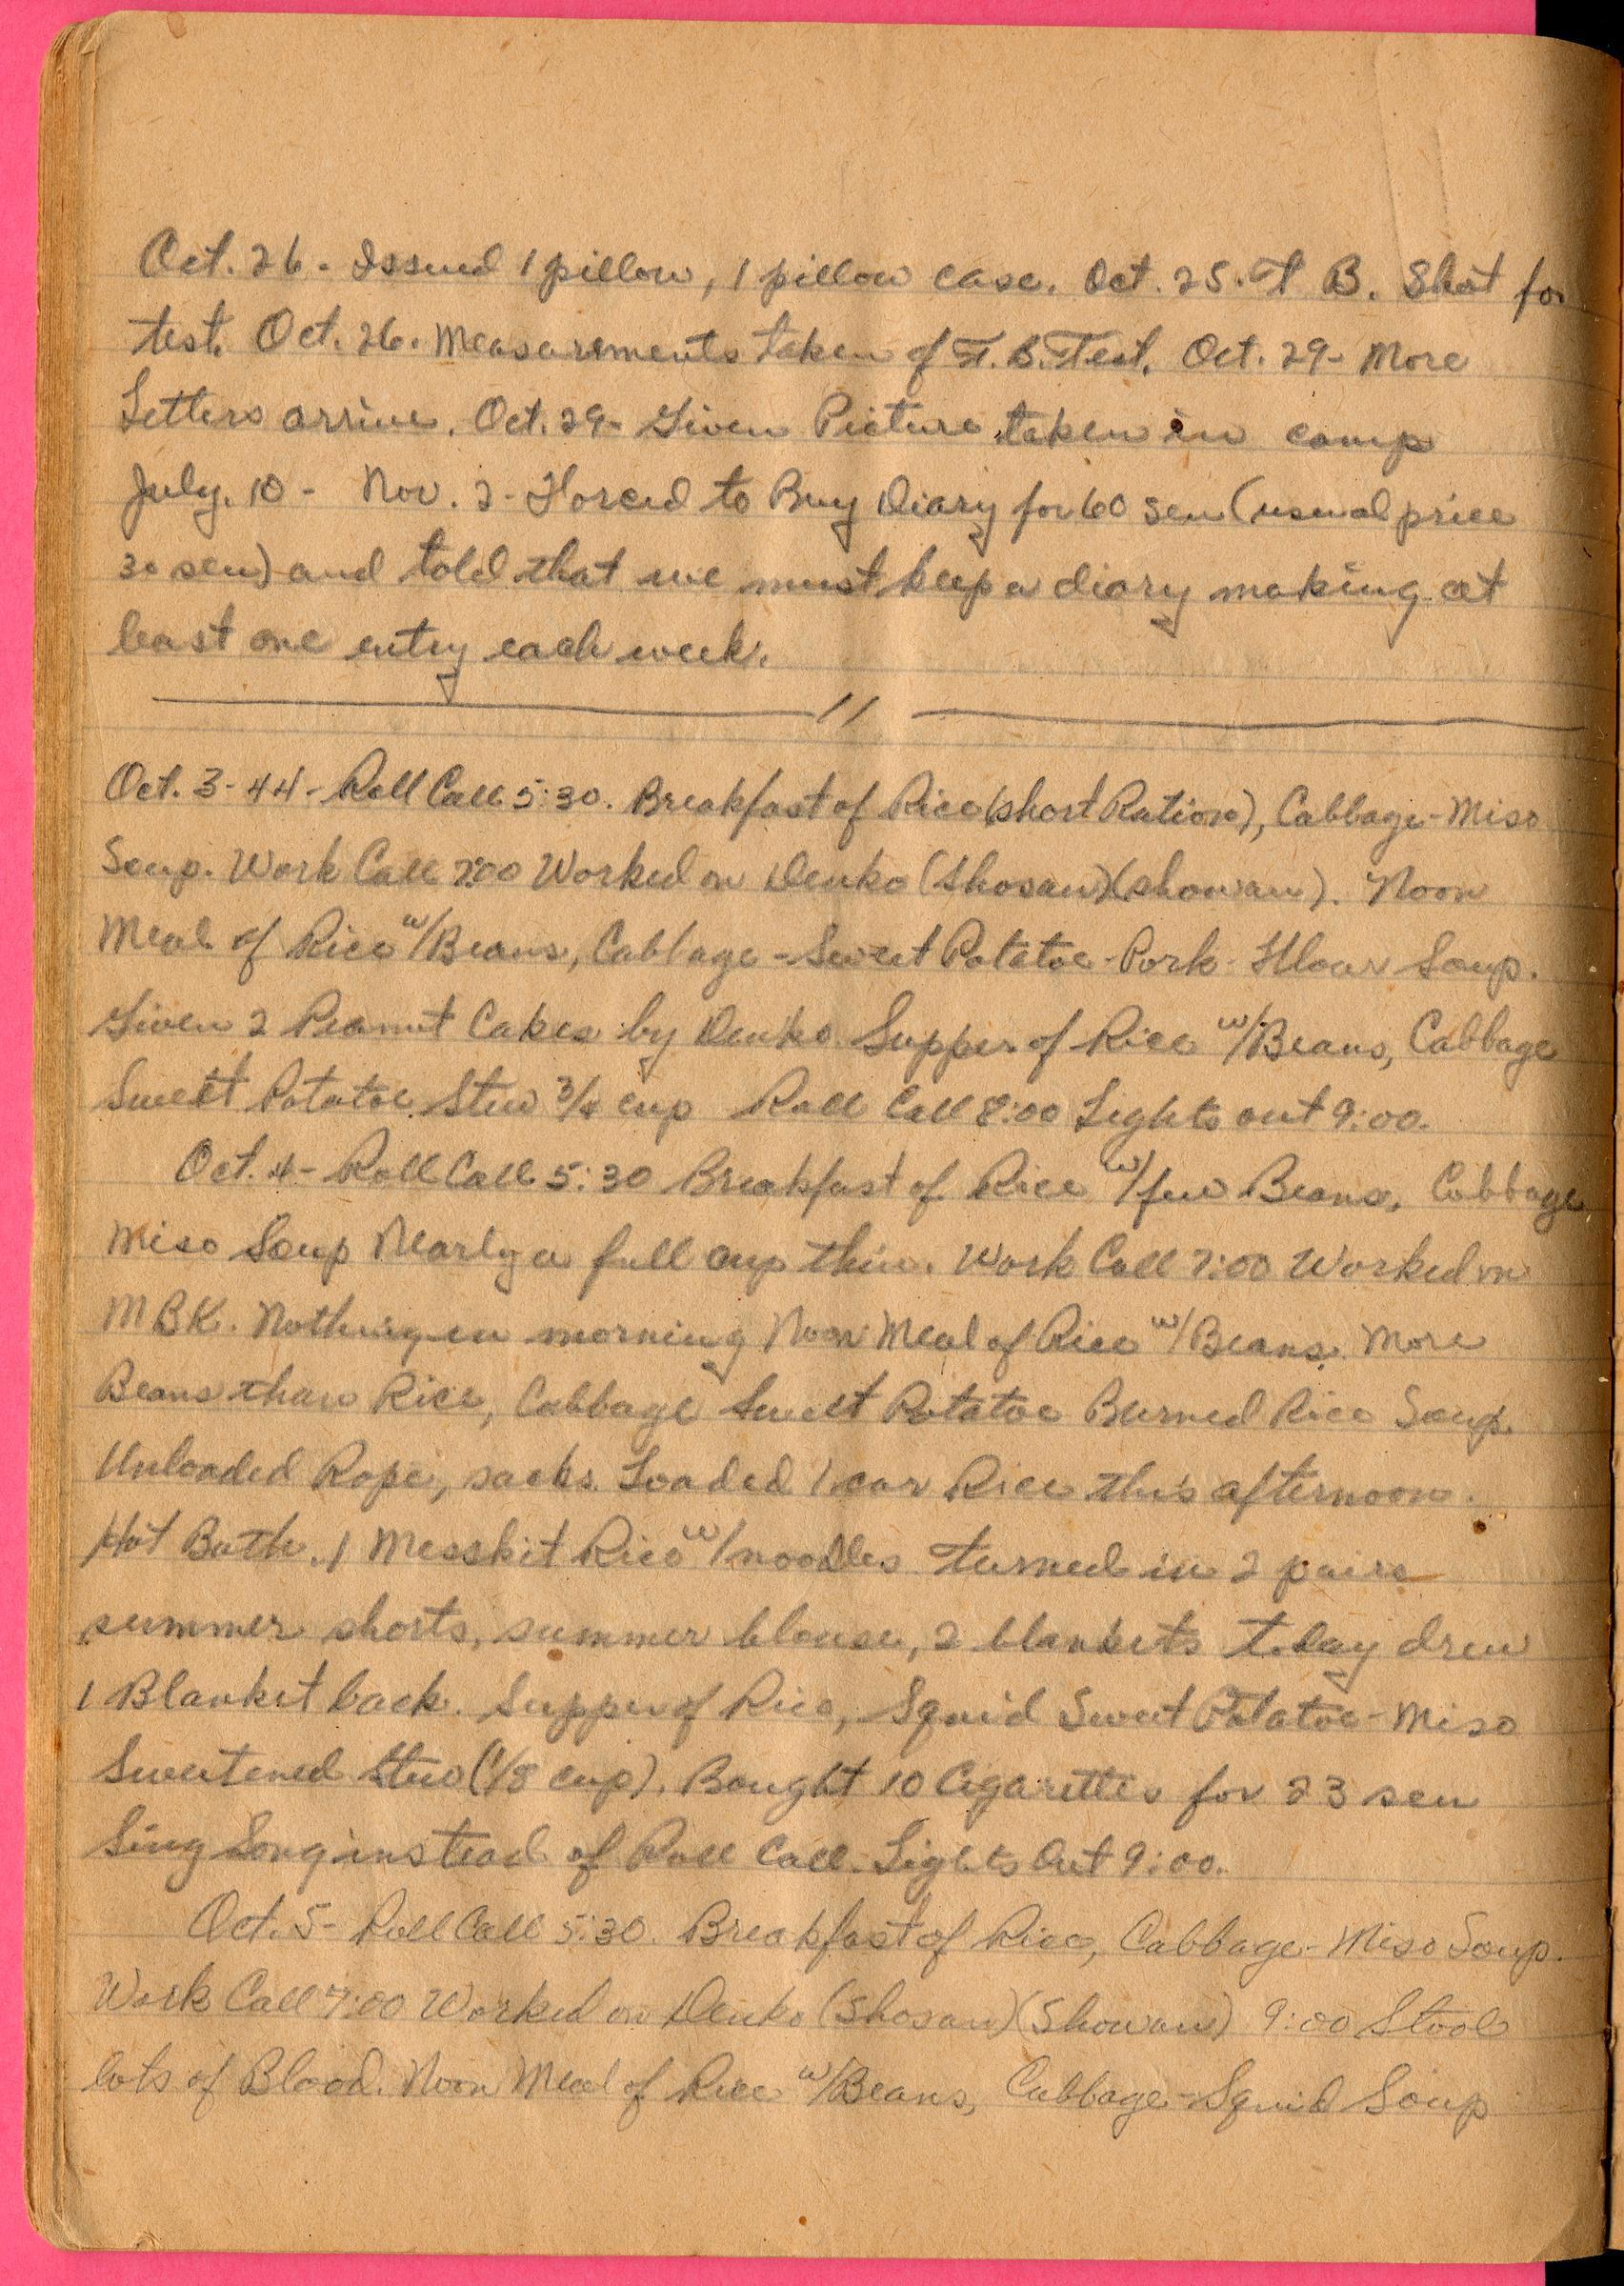 Oct. 26 - Issued 1 pillow, 1 pillow case. Oct. 25. T B. Shot for
test. Oct. 26. Measurements taken of T. B. Test. Oct. 29 - More
Letters arrive. Oct. 29 - Given Picture taken in camp
July. 10 - Nov. 2 - Forced to Buy Diary for 60 sen (usual price
30 sen) and told that we must keep a diary making at
least one entry each week.
//
Oct. 3 - 44 - Roll Call 5:30. Breakfast of Rice (short Ration), Cabbage - Miso
Soup. Work Call 7:00 Worked on Denko (Shosan) (showan). Noon
Meal of Rice w/Beans, Cabbage - Sweet Potatoe - Pork - Flour Soup.
Given 2 Peanut Cakes by Denko. Supper of Rice w/Beans, Cabbage
Sweet Potatoe Stew 3/4 cup Roll Call 8:00 Lights out 9:00.
Oct. 4 - Roll Call 5:30 Breakfast of Rice w/few Beans, Cabbage
Miso Soup Nearly a full cup thin. Work Call 7:00 Worked on
MBK. Nothing in morning Noon Meal of Rice w/Beans. More
Beans than Rice, Cabbage Sweet Potatoe Burned Rice Soup.
Unloaded Rope, sacks. Loaded 1 car Rice this afternoon.
Hot Bath. 1 Messkit Rice w/noodles Turned in 2 pairs
summer shorts, summer blouse, 2 blankets today drew
1 Blanket back. Supper of Rice, Squid Sweet Potatoe - Miso
Sweetened Stew (1/8 cup). Bought 10 Cigarettes for 23 sen
Sing Song instead of Roll Call. Lights Out 9:00.
Oct. 5 - Roll Call 5:30. Breakfast of Rice, Cabbage - Miso Soup.
Work Call 7:00 Worked on Denko (Shosan) (Showan) 9:00 Stool
lots of Blood. Noon Meal of Rice w/Beans, Cabbage - Squid Soup